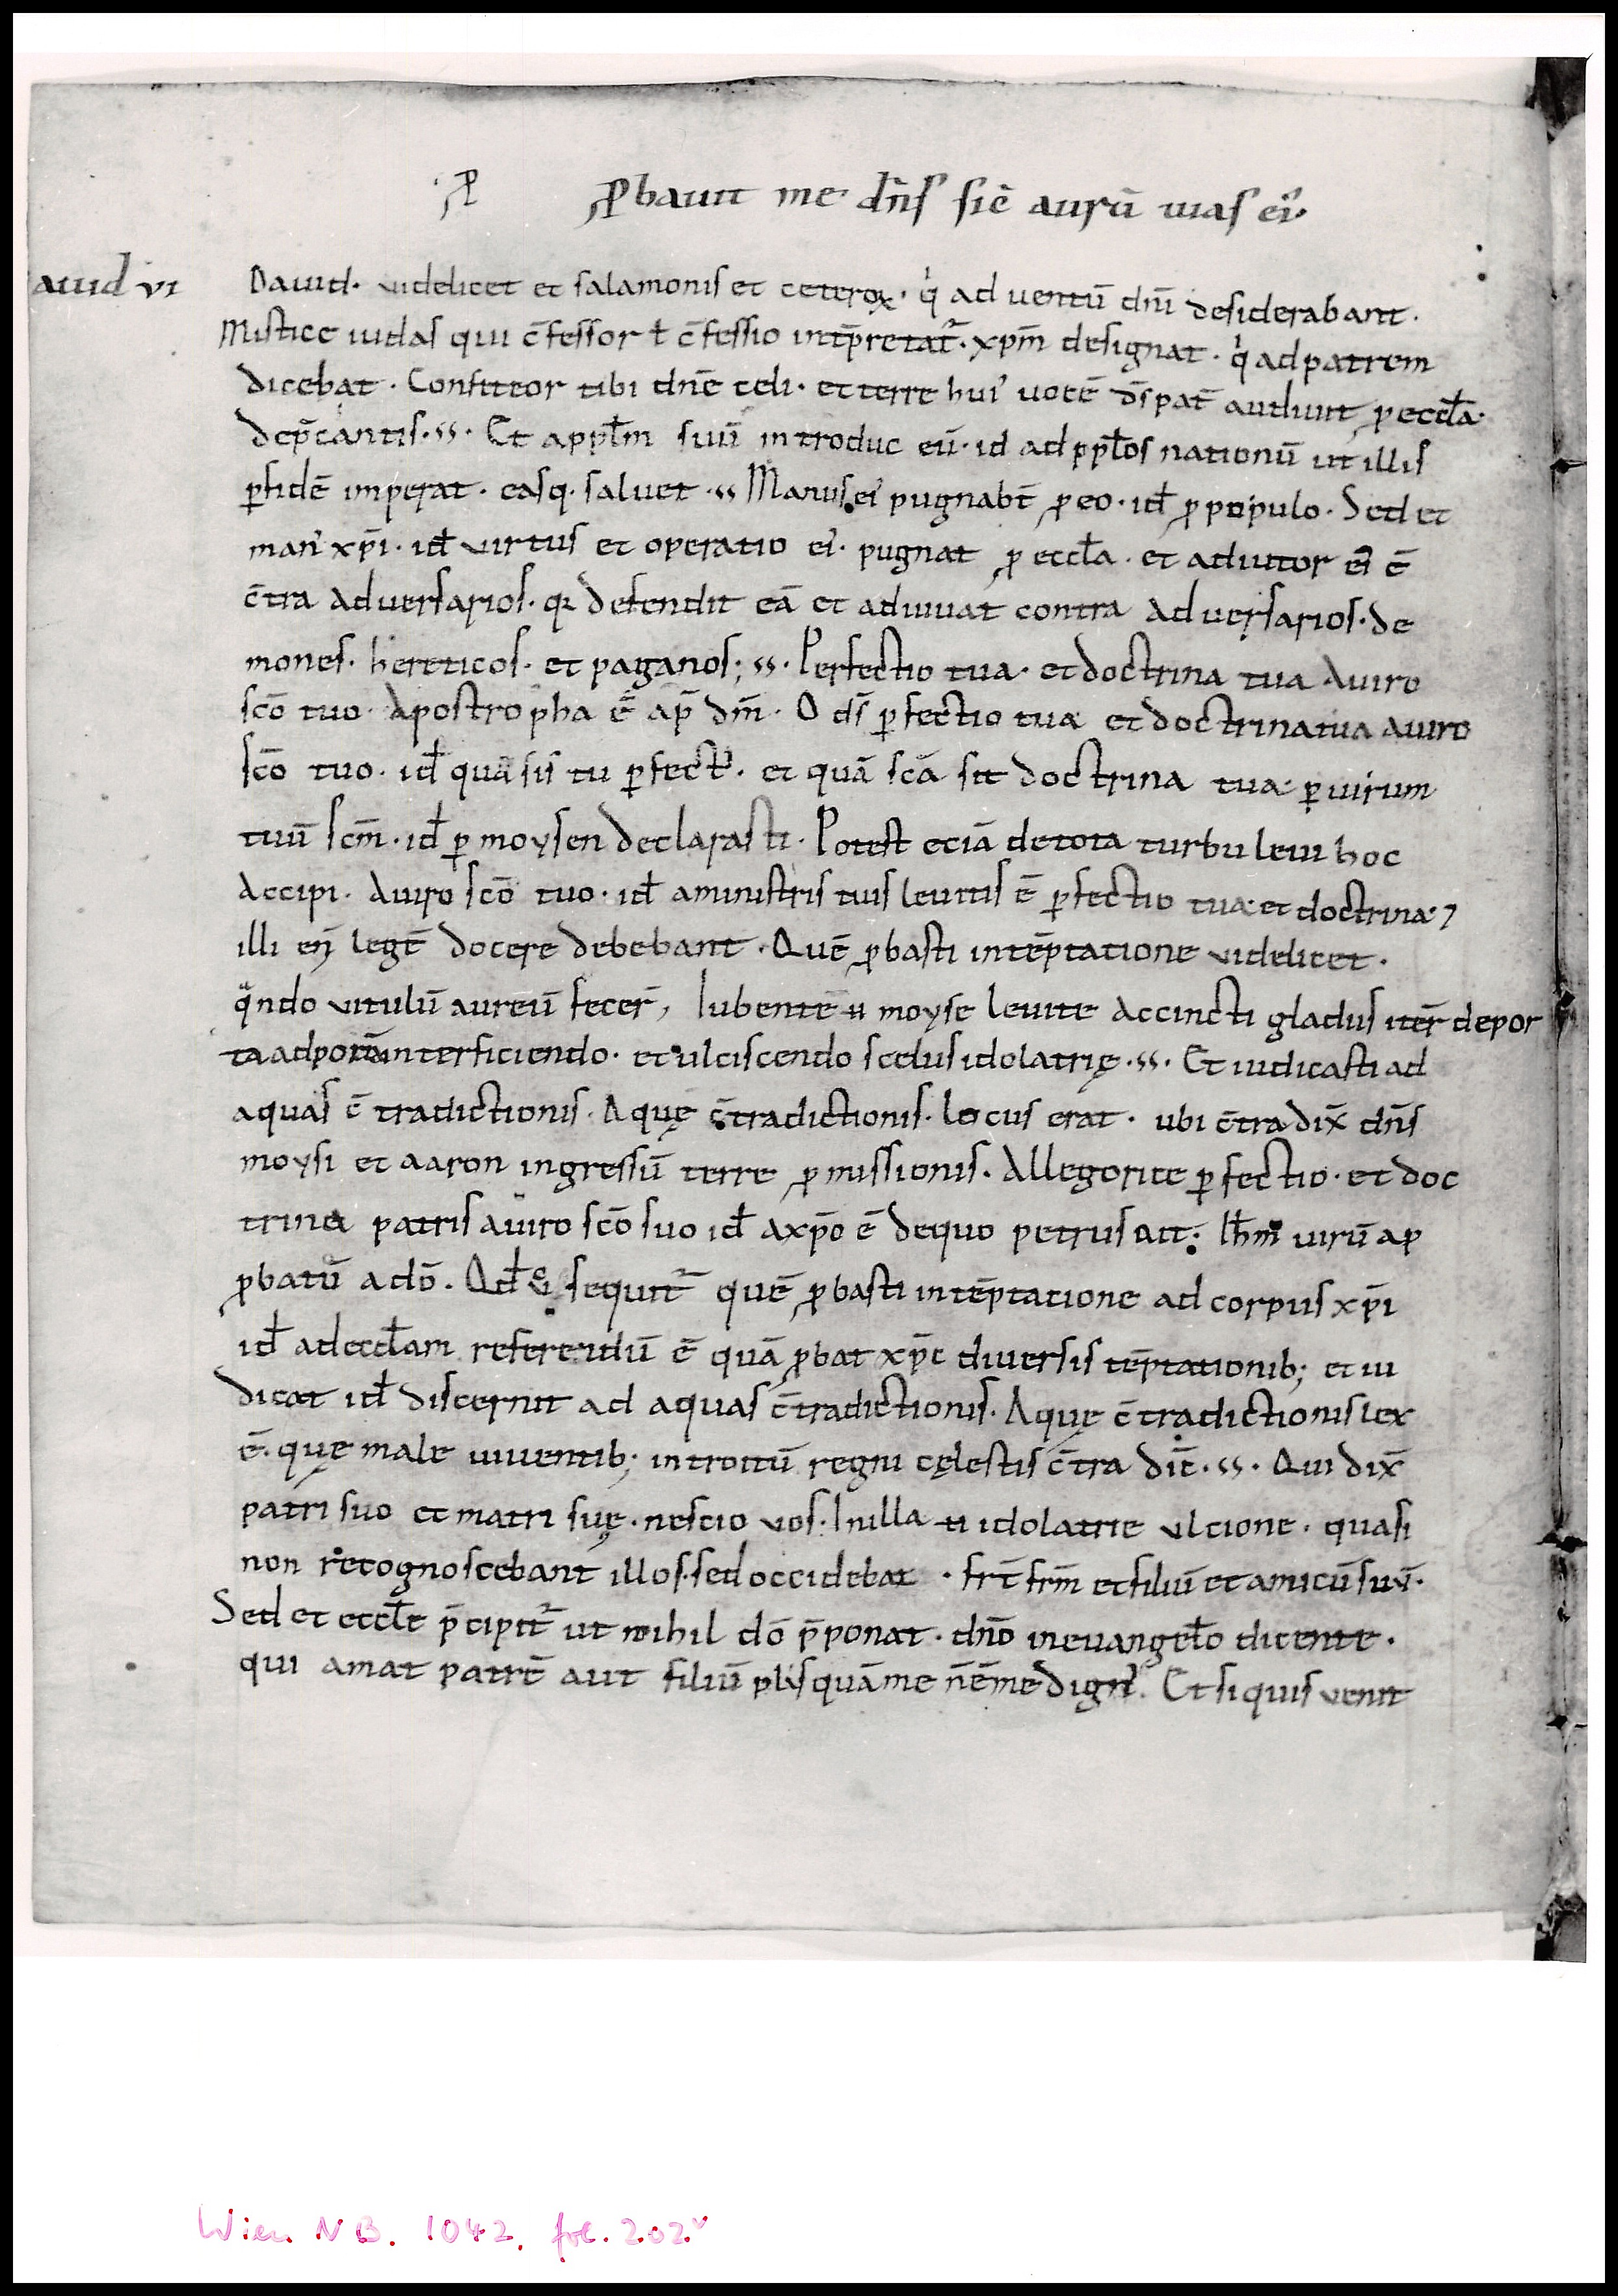 ꝓ ꝓbauit me dn̄s sic̄ aurū uas ei᾽.
auid vi
Dauid. videlicet et salamonis et ceteroꝝ. qͥ aduentū dn̄i desiderabant.
Mistice iudas qui c̄fessor ł c̄fessio int̄pretat᷑. xp̄m designat. qͥ ad patrem
dicebat. Confiteor tibi dn̄e celi. et terre hui᾽ uocē d̄s pat̄ audiuit ꝓ eccła.
dep̄cantis. ss. Et ad ppłm suū introduc eū. id ad ppłos nationū ut illis
ꝑ fidē imperat. easq. saluet. ss Manus ei᾽ pugnab̄t ꝓ eo. id̄ ꝓ populo. Sed et
man᾽ xp̄i. id̄ virtus et operatio ei᾽. pugnat ꝓ eccła. et adiutor ei᾽ ē
c̄tra aduersarios. qꝛ defendit eā et adiuuat contra aduersarios. de
mones. hereticos. et paganos; ss. Perfectio tua. et doctrina tua a uiro
sc̄o tuo. Apostropha ē ap̄ dm̄. O ds̄ ꝑfectio tua et doctrina tua a uiro
sc̄o tuo. id̄ quā sis tu ꝑfect᾽. et quā sc̄a sit doctrina tua ꝑ uirum
tuū scm̄. id̄ ꝑ moysen declarasti. Potest eciā de tota turbu leui hoc
accipi. A uiro sc̄o tuo. id̄ a ministris tuis leuitis ē ꝑfectio tua et doctrina ⁊
illi en̄ legē docere debebant. Quē ꝓbasti in tēptatione videlicet.
qͣndo vitulū aureū fecer̄, Iubente u moyse leuite accincti gladiis iter̄ de por
ta ad portā interficiendo. et ulciscendo scelus idolatrię. ss. Et iudicasti ad
aquas c̄tradictionis. Aquę c̄tradictionis. locus erat. ubi c̄tradix̄ dn̄s
moysi et aaron ingressū terre ꝓmissionis. Allegorice ꝑfectio. et doc
trina patris a uiro sc̄o suo id̄ a xp̄o ē de quo petrus ait: Ihm̄ uirū ap
ꝓbatū a dō. Qd̄ sequit᷑ quē ꝓbasti in tēptatione ad corpus xp̄i
id̄ ad eccłam referendū ē quā ꝓbat xp̄c diuersis tēptationib; et iu
dicat id̄ discernit ad aquas c̄tradictionis. Aquę c̄tradictionis lex
ē. quę male uiuentib; introitū regni cęlestis c̄tra dic̄. ss. Qui dix̄
patri suo et matri suę. nescio vos. In illa u idolatrie ulcione. quasi
non recognoscebant illos. sed occidebat. frt̄ frm̄ et filiū et amicū suū.
Sed et eccłe p̄cipit᷑ ut nihil dō p̄ponat. dn̄o in euangeło dicente.
qui amat patrē aut filiū pl᾽ squā me n̄ ē me dign᾽. Et si quis venit
Wien NB. 1042. fol. 202v